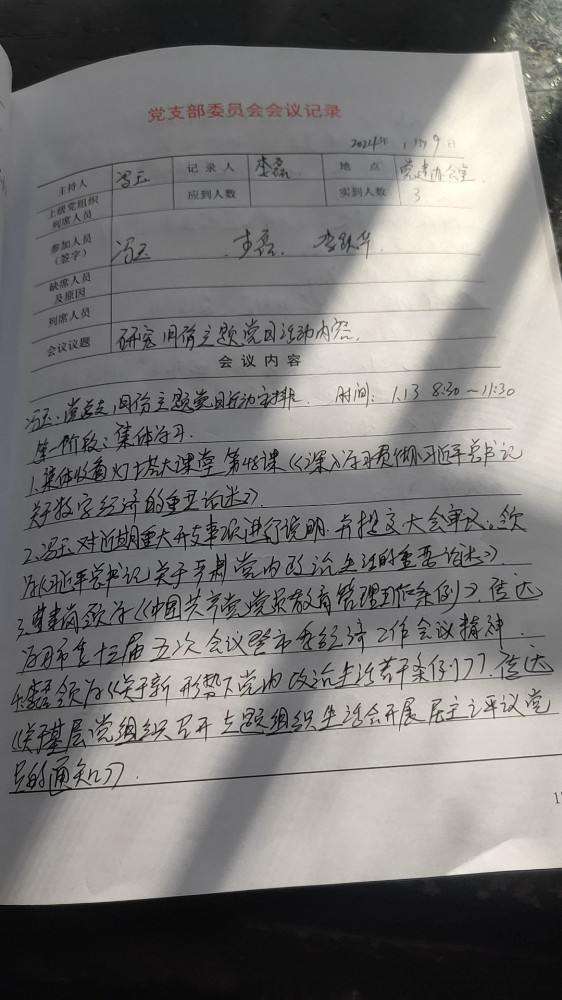 党支部委员会会议记录
2024年 1月9日
主持人 冯玉 记录人 李磊 地点 党建办公室
上级党组织列席人员 应到人数 实到人数 3
参加人员(签字) 冯玉 李磊
缺席人员及原因
列席人员
会议议题 研究1月份主题党日活动内容.
会议内容
冯玉:党总支1月份主题党日活动安排. 时间:1.13 8:30~11:30
第一阶段:集体学习.
1.集体收看灯塔大课堂第48课《《深入学习贯彻习近平总书记
关于数字经济的重要论述》.
2.冯玉对近期重大开支事项进行说明.并提交大会审议.领
学《习近平总书记关于严肃党内政治生活的重要论述》.
3.领学《《中国共产党党员教育管理工作条例》》.传达
学习市委十三届五次会议暨市委经济工作会议精神.
4.李磊领学《《关于新形势下党内政治生活若干条例》》.传达
《《关于基层党组织召开专题组织生活会开展民主评议党
员的通知》》.